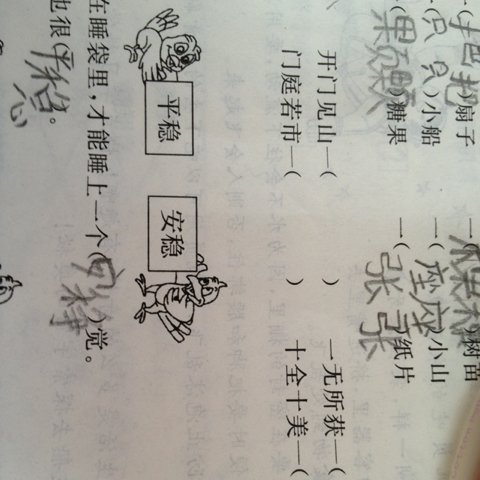 (把把)扇子 一(棵棵)树苗
(只只)小船 一(座座)小山
(颗颗)糖果 一(张张)纸片
开门见山—( ) 一无所获—(
门庭若市—( ) 十全十美—(
平稳 安稳
在睡袋里，才能睡上一个(安稳)觉。
也很(平稳)。